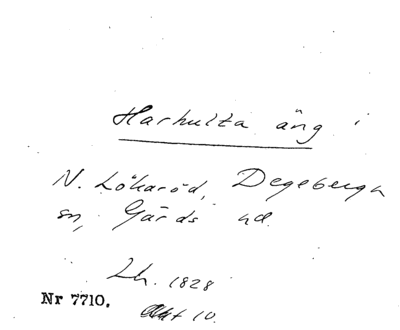 Harhulta äng i
N. Lökaröd, Degeberga
sn, Gärds hd.
Lh. 1828
Nr 7710.
Akt 10.